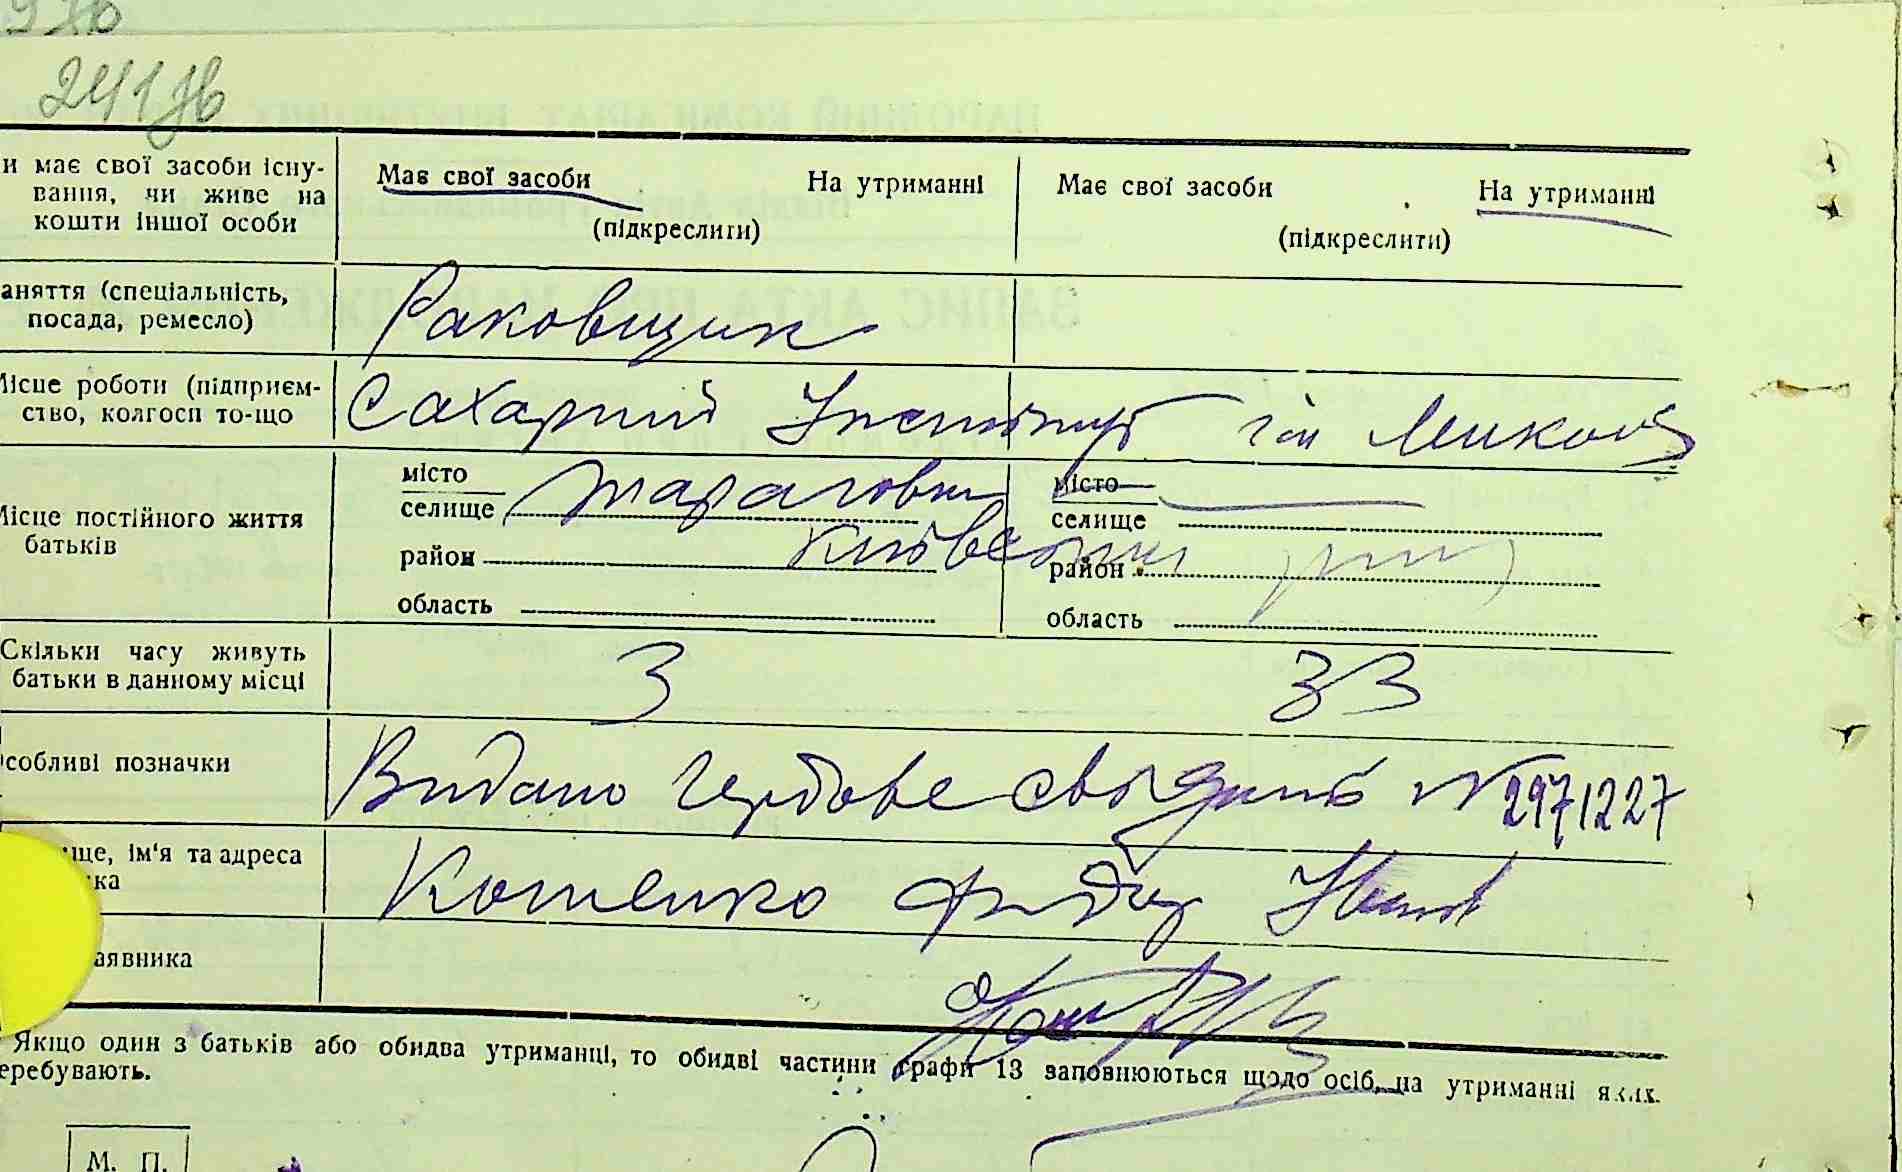 241
и має свої засоби існу-
вання, чи живе на
кошти іншої особи
Має свої засоби На утриманні
(підкреслити)
Має свої засоби На утриманні
(підкреслити)
аняття (спеціальність,
посада, ремесло)
Раковщик
Місце роботи (підприєм-
ство, колгосп то-що
Сахарний Інститут
Місце постійного життя
батьків
місто
селище
район
область
місто
селище
район
область
Скільки часу живуть
батьки в данному місці
3
33
собливі позначки
Видано Гербове №2971227
ще, ім'я та адреса
ка
Котенко
аявника
Якщо один з батьків або обидва утриманці, то обидві частини графи 13 заповнюються щодо осіб, на утриманні яких
еребувають.
М. П.